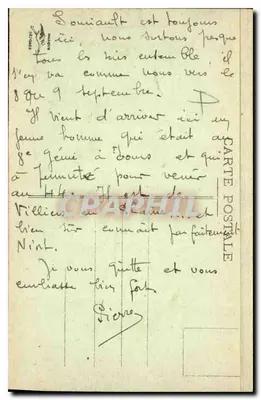 Louviault est toujours
ici, nous sortons presque
tous les soirs ensemble, il
s'en va comme nous vers le
8 ou 9 septembre.
Il vient d'arriver ici un
jeune homme qui était au
8e Génie à Tours et qui
a permuté pour venir
au 44. Il est de
Villiers en
bien sûr connait parfaitement
Niort.
Je vous quitte et vous
embrasse bien fort
Pierre
CARTE POSTALE
CPArama.com